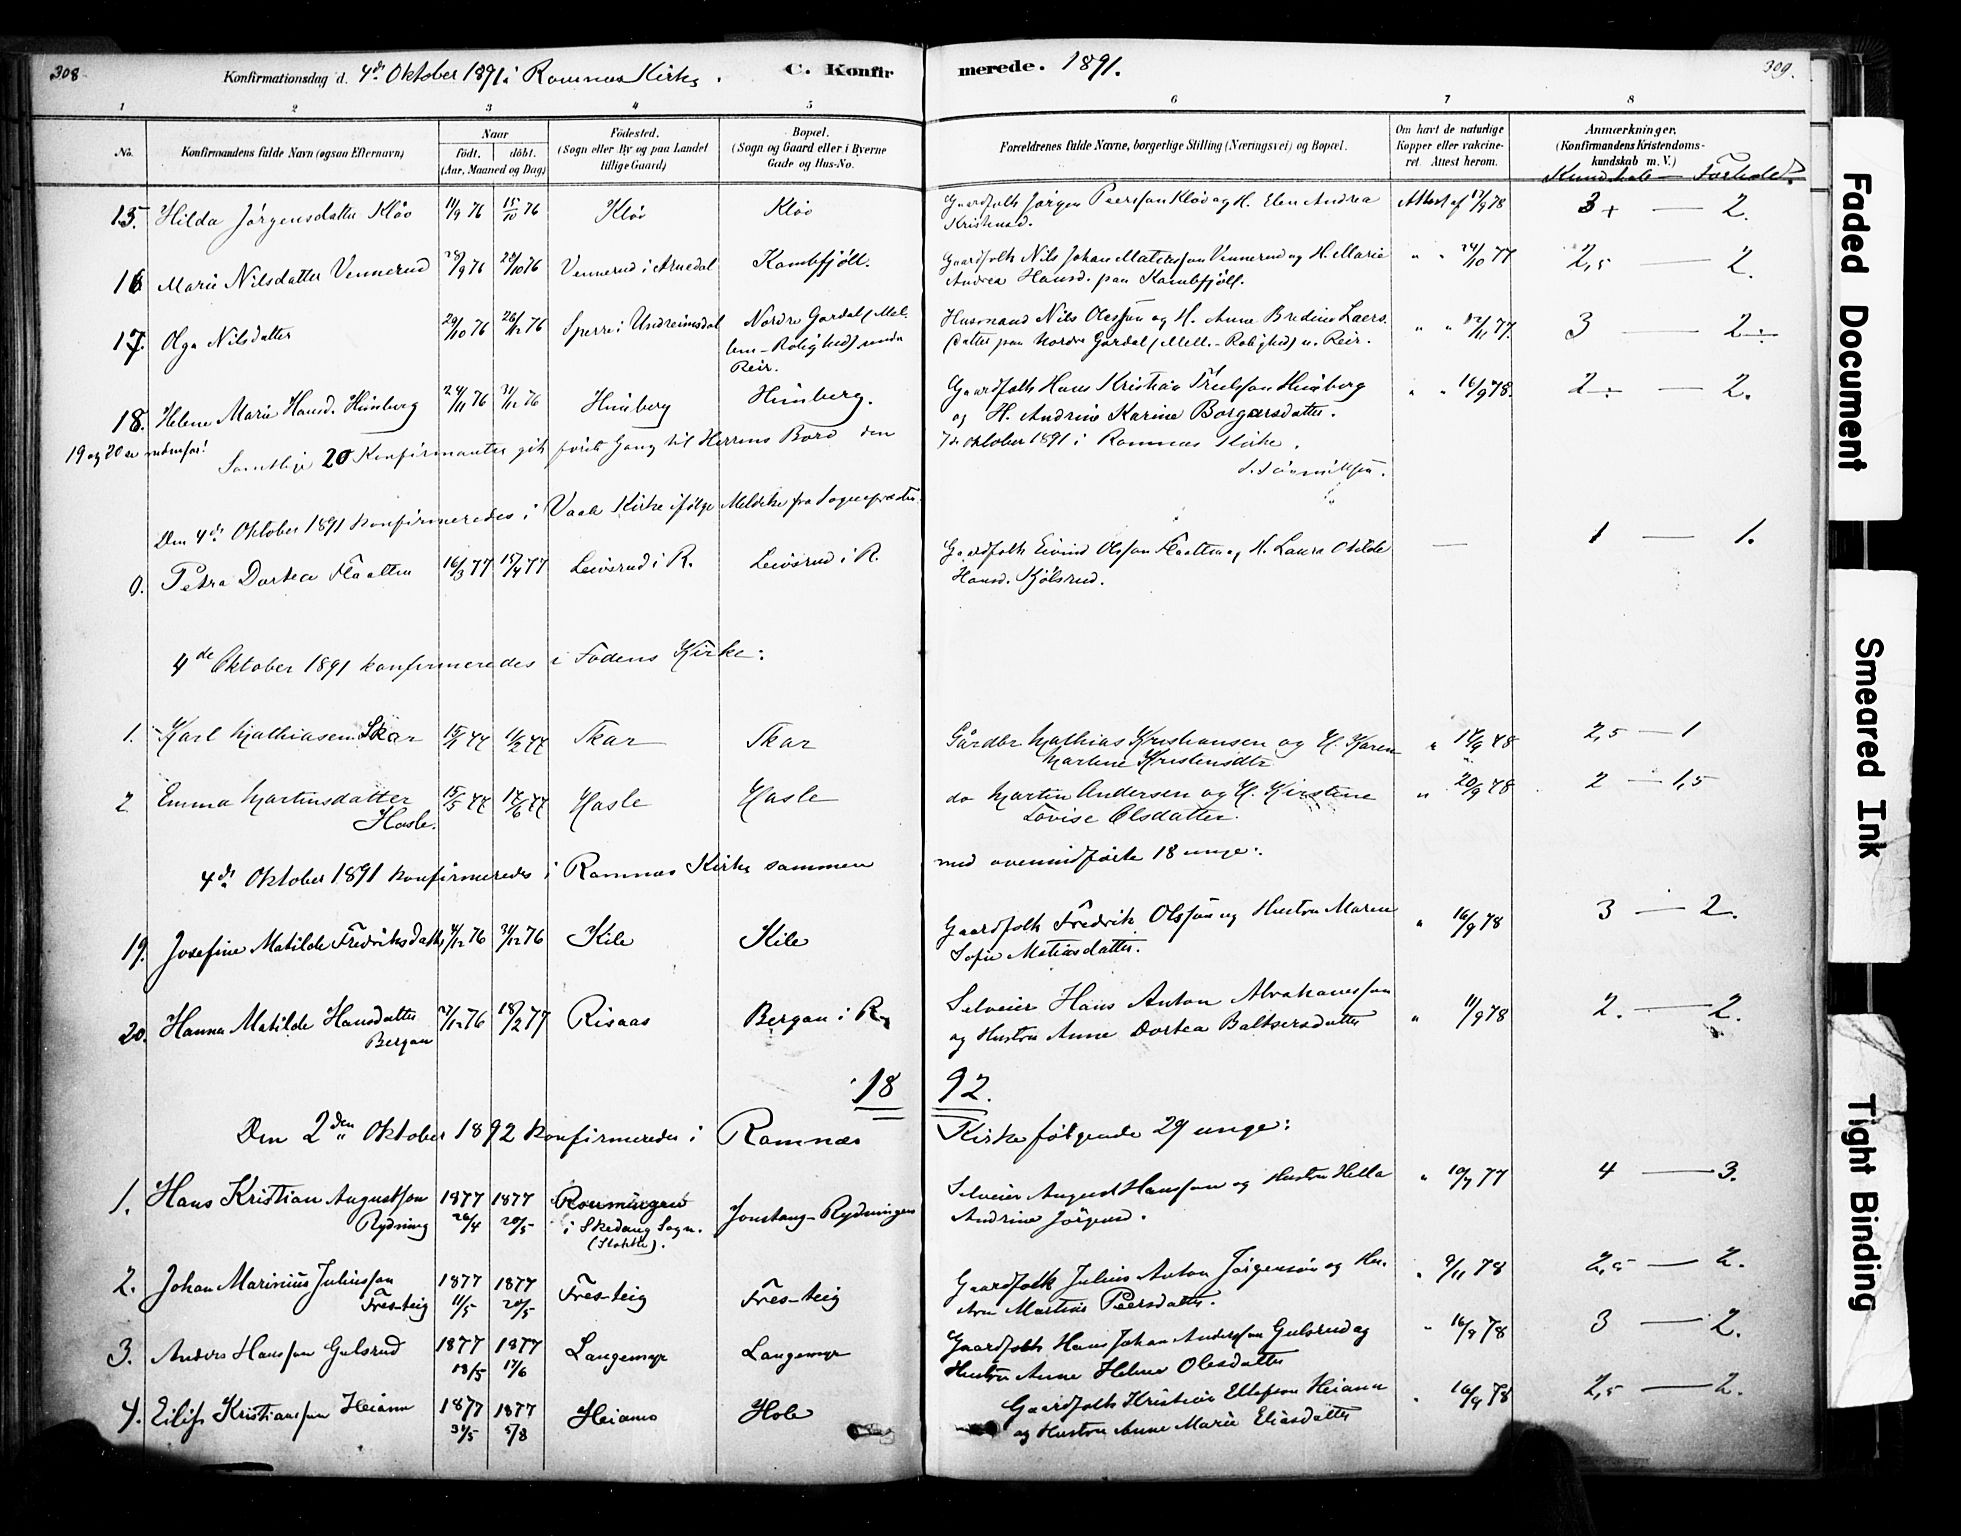 308
Konfirmationsdag d. 4de Oktober 1891 i Ramnæs Kirke.
C. Konfirmerede. 1891.
309.
1 2 3 4 5 6 7 8
No.
Konfirmandens fulde Navn (ogsaa Efternavn)
Naar
født. døbt.
(Aar, Maaned og Dag)
Fødested.
(Sogn eller By og paa Landet
tillige Gaard)
Bopæl.
(Sogn og Gaard eller i Byerne
Gade og Hus-No.
Forældrenes fulde Navne, borgerlige Stilling (Næringsvei) og Bopæl.
Om havt de naturlige
Kopper eller vakcine-
ret. Attest herom.
Anmærkninger.
(Konfirmandens Kristendoms-
kundskab m. V.)
Kundskab — Forhold.
15. Hilda Jørgensdatter Kløv 11/9 76 15/10 76 Kløv Kløv Gaardfolk Jørgen Peersson Kløv og H. Elen Andrea Attest af 17/9 78 3+ — 2.
Kristensd.
16 Marie Nilsdatter Vennerud 28/9 76 29/10 76 Vennerud i Arnedal Kambfjöll. Gaardfolk Nils Johan Matersson Vennerud og H. Marie " " 24/10 77 2,5 — 2.
Andrea Hansd. paa Kambfjöll.
17. Olga Nilsdatter 29/10 76 26/12 76 Sperre i Undreimsdal Nordre Gardal (Mel- Husmand Nils Olesson og H. Anne Bredine Laers- " " 12/11 77. 3 — 2÷
lem-Rolighed) under datter paa Nordre Gardal (Mell.-Rolighed) u. Reir.
Reir.
18. Helene Marie Hansd. Himberg 24/11 76 31/12 76 Himberg Himberg. Gaardfolk Hans Kristian Trulsson Himberg " " 16/9 78. 2÷ — 2.
og H. Andrine Karine Borgarsdatter.
19 og 20 se nedenfor! Samtlige 20 Konfirmanter gik første Gang til Herrens Bord den 7de Oktober 1891 i Ramnæs Kirke.
Den 4de Oktober 1891 konfirmeredes i Vaale Kirke ifølge Meldelse fra Sognepræsten
0. Petra Dortea Flaatten 16/3 77 15/4 77 Leivsrud i R. Leivsrud i R. Gaardfolk Eivind Olsson Flaatten og H. Laura Otilde — 1 — 1.
Hansd. Kjølsrud.
4de Oktober 1891 konfirmeredes i Fodens Kirke:
1. Karl Mathiasen Skar 15/1 77 11/2 77 Skar Skar Gårdbr Mathias Kristiansen og H. Karen " 17/9 78 2,5 — 1
Martine Kristensdtr
2 Emma Martinsdatter 15/5 77 17/6 77 Hasle Hasle do Martin Andersen og H. Kirstine " 20/9 78 2 — 1,5
Hasle. Lovise Olsdatter.
4de Oktober 1891 konfirmeredes i Ramnæs Kirke sammen med ovenindførte 18 unge:
19. Josefine Matilde Fredriksdatter 4/12 76 31/12 76 Kile Kile Gaardfolk Fredrik Olsson og Hustru Maren " 16/9 78 3 — 2.
Sofie Matiasdatter.
20. Hanna Matilde Hansdatter 27/12 76 18/2 77 Risaas Bergan i R. Selveier Hans Anton Abrahamsson " 11/9 78 2. — 2.
Bergan og Hustru Anne Dortea Baltsersdatter
1892.
Den 2den Oktober 1892 konfirmeredes i Ramnæs Kirke følgende 29 unge:
1. Hans Kristian Augustson 1877 1877 Jonstang-Rydningen Selveier August Hansson og Hustru Hella " 10/7 77 4 — 3.
Rydning 26/4 20/5 i Skedang Sogn. Andrine Jørgensd.
(Stokke).
2. Johan Marinius Juliusson 1877 1877 Fres-teig Fres-teig Gaardfolk Julius Anton Jørgenson og Hu- " 9/11 78 2,5 — 2.
Fres-teig 11/5 20/5 stru Martine Peersdatter.
3. Anders Hansson Gulsrud 1877 1877 Langemyr Langemyr Gaardfolk Hans Johan Andersson Gulsrud og " 16/9 78 3 — 2.
18/5 17/6 Hustru Anne Helene Olesdatter
4. Eilif Kristiansson Heiann 1877 1877 Heiann Hole Gaardfolk Kristian Ellefson Heiann " 16/9 78 2,5 — 2.
31/5 5/8 og Hustru Anne Marie Eliasdatter
Faded Document
Smeared Ink
Tight Binding